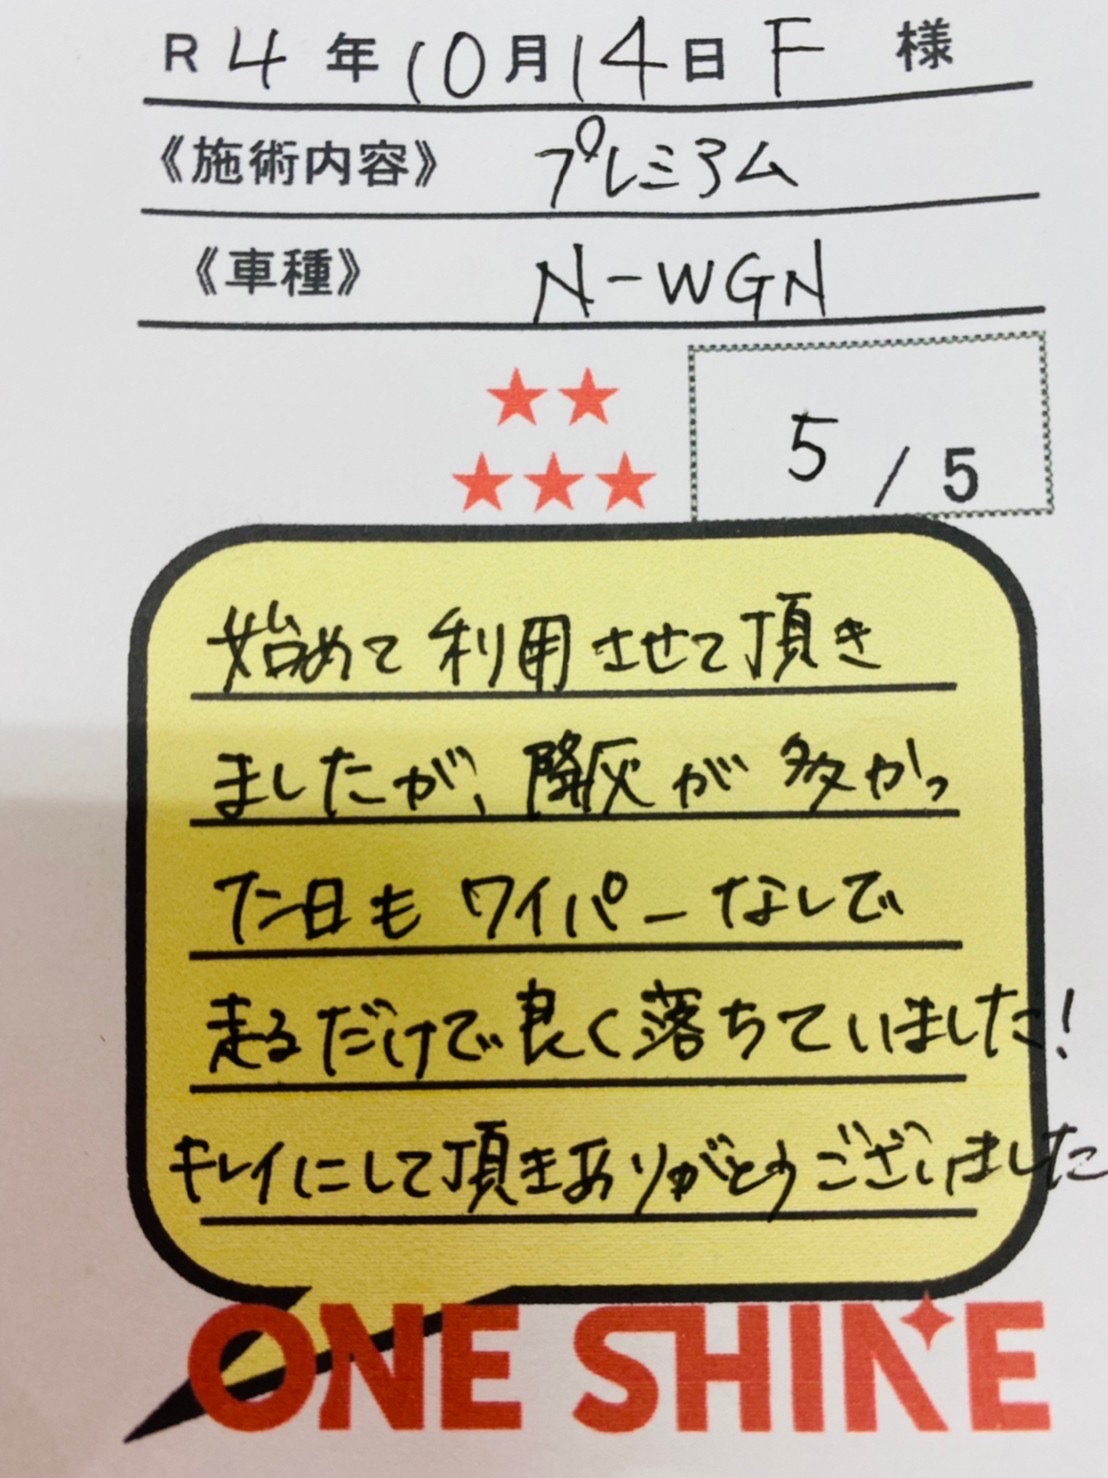 R 4 年 10 月 14 日 F 様
《施術内容》 プレミアム
《車種》 N-WGN
★★
★★★ 5 / 5
始めて利用させて頂き
ましたが、降灰が多かっ
た日もワイパーなしで
走るだけで良く落ちていました!
キレイにして頂きありがとうございました
ONE SHINE